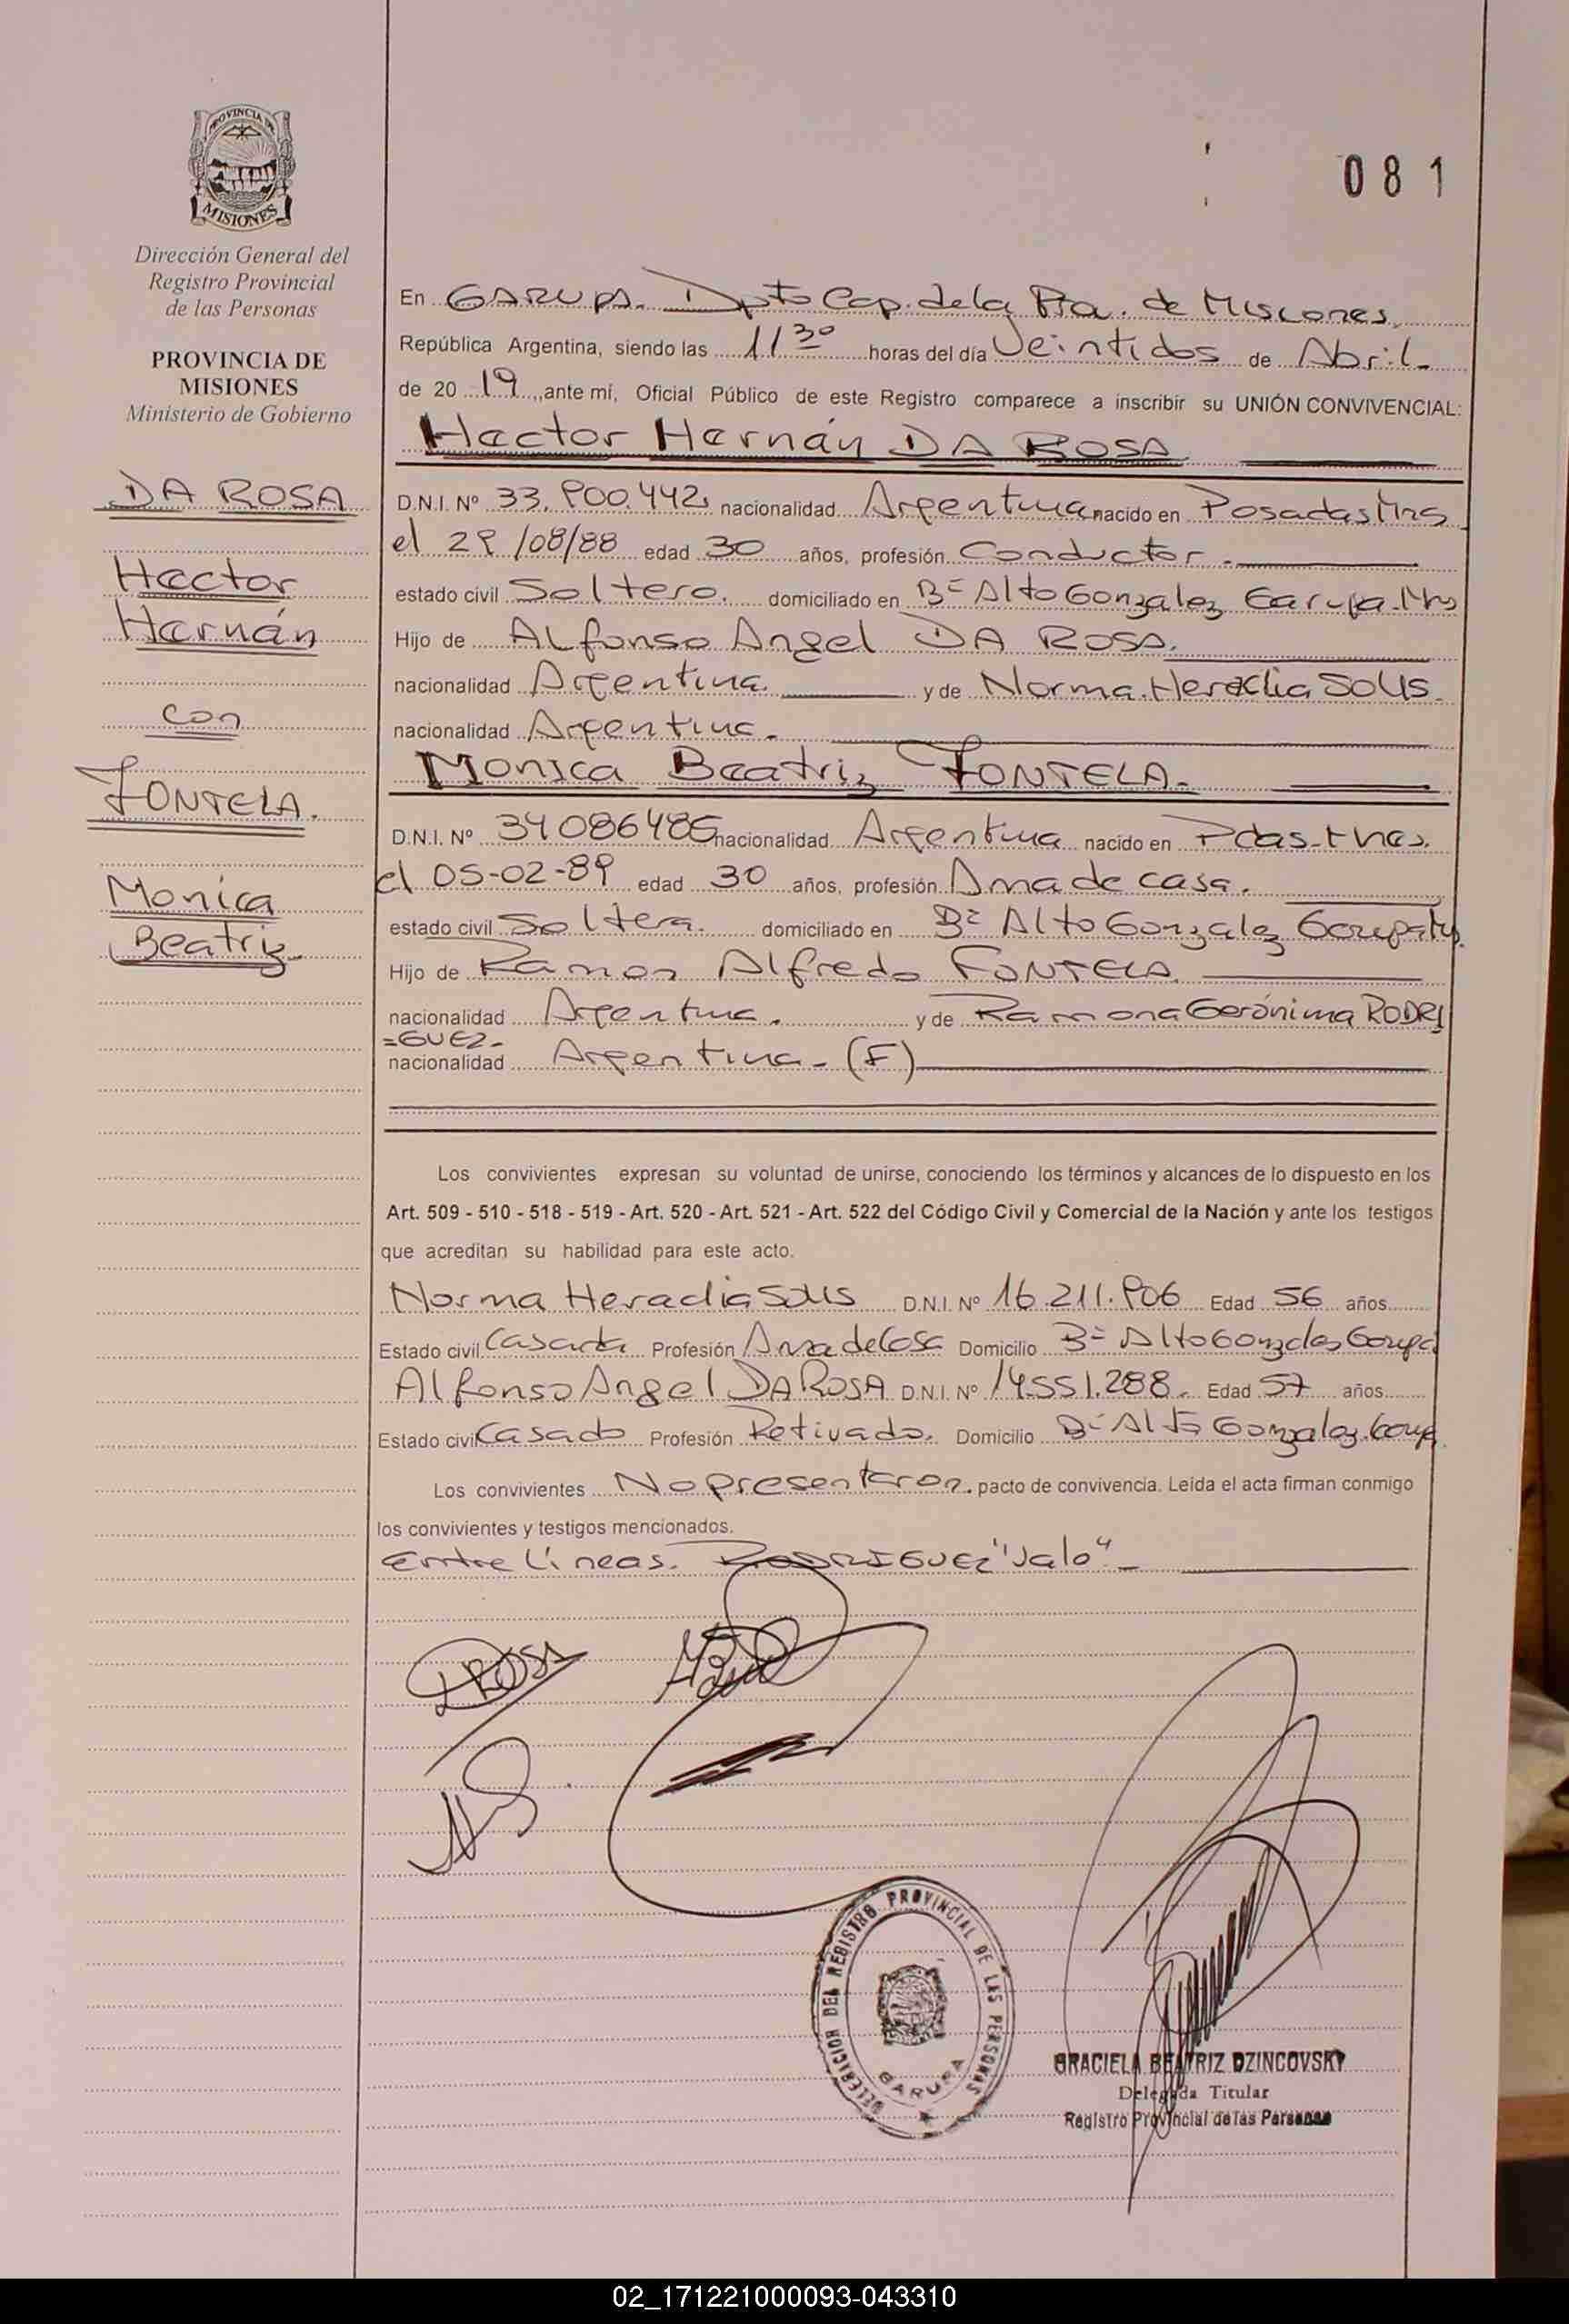 PROVINCIA DE
MISIONES
Dirección General del
Registro Provincial
de las Personas
PROVINCIA DE
MISIONES
Ministerio de Gobierno
DA ROSA
Hector
Hernán
con
FONTELA.
Monica
Beatriz
081
En GARUPA. Dpto Cap. de la Pcia. de Misiones,
República Argentina, siendo las 11 30 horas del día Veintidos de Abril
de 20 19, ante mí, Oficial Público de este Registro comparece a inscribir su UNIÓN CONVIVENCIAL:
Hector Hernán DA ROSA
D.N.I. Nº 33.900.442, nacionalidad Argentina nacido en Posadas Mns
el 29/08/88 edad 30 años, profesión Conductor.
estado civil Soltero. domiciliado en Bº Alto Gonzalez Garupa. Mns
Hijo de Alfonso Angel DA ROSA.
nacionalidad Argentina. y de Norma Heraclia SOLIS.
nacionalidad Argentina.
Monica Beatriz FONTELA.
D.N.I. Nº 34086486 nacionalidad Argentina nacido en Pdas. Mnes.
el 05-02-89 edad 30 años, profesión Ama de casa.
estado civil Soltera. domiciliado en Bº Alto Gonzalez Garupa
Hijo de Ramon Alfredo FONTELA.
nacionalidad Argentina. y de Ramona Gerónima RODRI
=GUEZ-
nacionalidad Argentina. (F)
Los convivientes expresan su voluntad de unirse, conociendo los términos y alcances de lo dispuesto en los
Art. 509 - 510 - 518 - 519 - Art. 520 - Art. 521 - Art. 522 del Código Civil y Comercial de la Nación y ante los testigos
que acreditan su habilidad para este acto.
Norma Heraclia Solis D.N.I. Nº 16.211.906 Edad 56 años
Estado civil Casada Profesión Ama de Casa Domicilio Bº Alto Gonzalez Garupa
Alfonso Angel DA ROSA D.N.I. Nº 14.551.288. Edad 57 años
Estado civil Casado Profesión Retirado. Domicilio Bº Alto Gonzalez. Garupa
Los convivientes No presentaron. pacto de convivencia. Leída el acta firman conmigo
los convivientes y testigos mencionados.
Entre líneas. RODRIGUEZ "Vale".
DROSA
DELEGACION DEL REGISTRO PROVINCIAL DE LAS PERSONAS
GARUPA
GRACIELA BEATRIZ DZINCOVSKY
Delegada Titular
Registro Provincial de las Personas
02_171221000093-043310